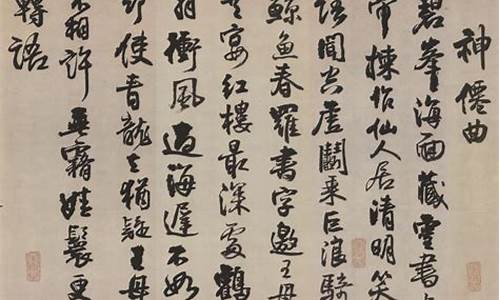 神僊曲
碧峯海面藏靈書
帝揀作仙人居清明笑
語聞空虛鬭乘巨浪騎
鯨魚春羅書字邀王母
共宴紅樓最深處鶴
羽衝風過海遲不如
却使青龍去猶疑王母
不相許垂霧娃鬟更
轉語